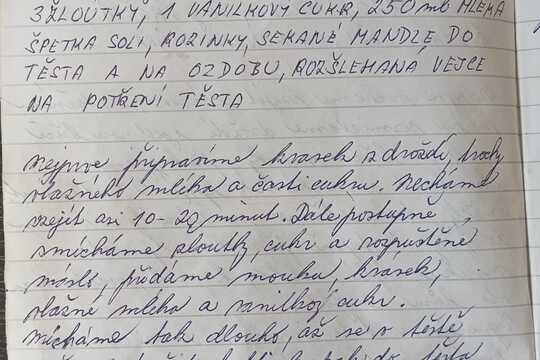 3 ŽLOUTKY, 1 VANILKOVÝ CUKR, 250 ml MLÉKA
ŠPETKA SOLI, ROZINKY, SEKANÉ MANDLE DO
TĚSTA A NA OZDOBU, ROZŠLEHANÁ VEJCE
NA POTŘENÍ TĚSTA
Nejprve připravíme kvásek z droždí, trochy
vlažného mléka a části cukru. Necháme
vzejít asi 10-20 minut. Dále postupně
smícháme žloutky, cukr a rozpuštěné
máslo, přidáme mouku, kvásek,
vlažné mléko a vanilkový cukr.
Mícháme tak dlouho, až se v těstě